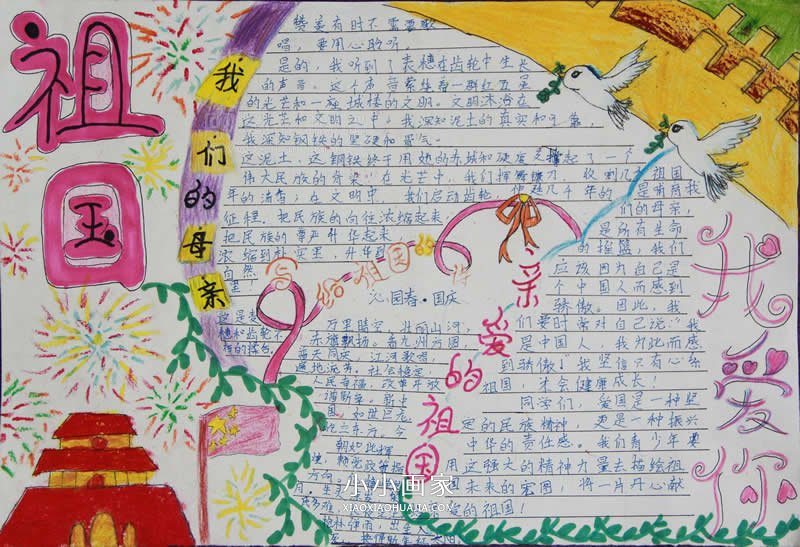 祖国
我们的母亲
赞美有时不需要歌
唱,要用心聆听。
是的,我听到了麦穗在齿轮中生长
的声音。这个声音萦绕着一群红五星
的光芒和一座城楼的文明。文明沐浴在
这光芒和文明之中,我深知泥土的真实和可靠,
我深知钢铁的坚硬和勇气。
这泥土,这钢铁终于用她的赤诚和硬度支撑起了一个
伟大民族的脊梁。在光芒中,我们挥舞镰刀,收割几千
年的清香;在文明中,我们启动齿轮,
征程,把民族的向往浓缩起来,
把民族的尊严升华起来,
浓缩到朴实里,升华到
自然
里!
写给祖国的诗
沁园春·国庆
万里晴空,壮丽山河,
赤旗飘扬。看九州方圆,
普天同庆,江河歌唱,
遍地流芳。社会稳定,
人民幸福,改革开放
国,如进巨龙
屹立东方。今
朝如此辉
亲爱的祖国
祖国
是哺育我
们的母亲,
是所有生命
的摇篮,我们
应该因为自己是
个中国人而感到
骄傲。因此,我
们要时常对自己说:“我
是中国人,我为此而感
到骄傲!”我坚信只有心系
祖国,才会健康成长!
同学们,爱国是一种坚
定的民族精神,更是一种振兴
中华的责任感。我们青少年要
用这强大的精神力量去描绘祖
国未来的宏图,将一片丹心献
的祖国!
我爱你
小小画家
XIAOXIAOHUAJIA.COM